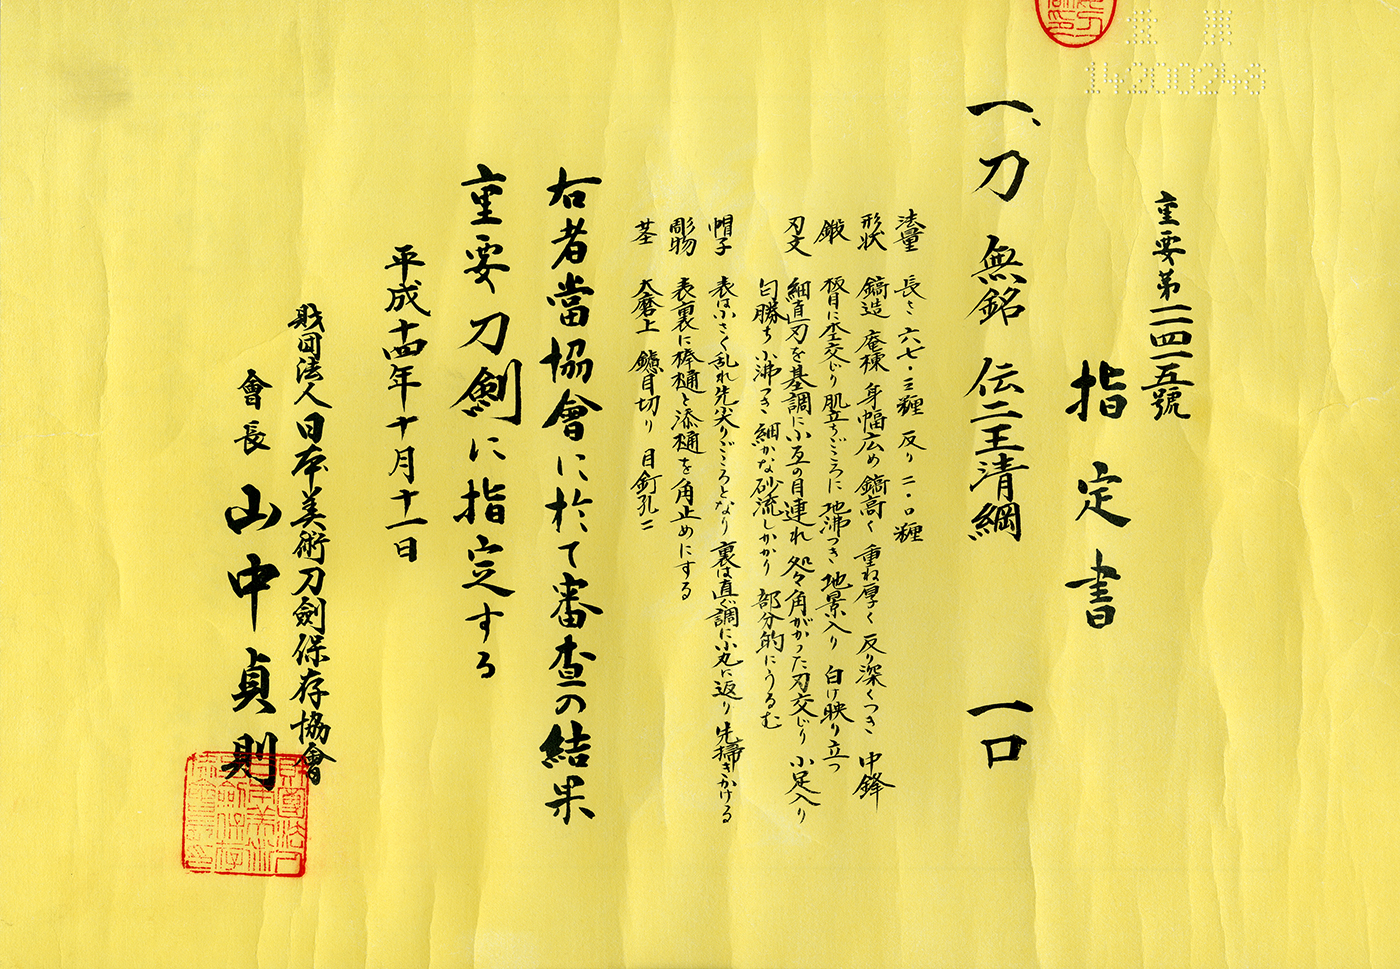 重要 14200248
重要第一二四一五號
指定書
一、刀 無銘 伝二王清綱 一口
法量 長さ 六七・三糎 反り 二・〇糎
形状 鎬造 庵棟 身幅広め 鎬高く 重ね厚く 反り深くつき 中鋒
鍛 板目に杢交じり 肌立ちごころに 地沸つき 地景入り 白け映り立つ
刃文 細直刃を基調に小互の目連れ 処々角がかった刃交じり 小足入り
匂勝ち 小沸つき 細かな砂流しかかり 部分的にうるむ
帽子 表は小さく乱れ先尖りごころとなり 裏は直ぐ調に小丸に返り 先掃きかける
彫物 表裏に棒樋と添樋を角止めにする
茎 大磨上 鑢目切り 目釘孔二
右者當協會に於て審査の結果
重要刀劍に指定する
平成十四年十月十一日
財団法人日本美術刀劍保存協會
會長 山中貞則